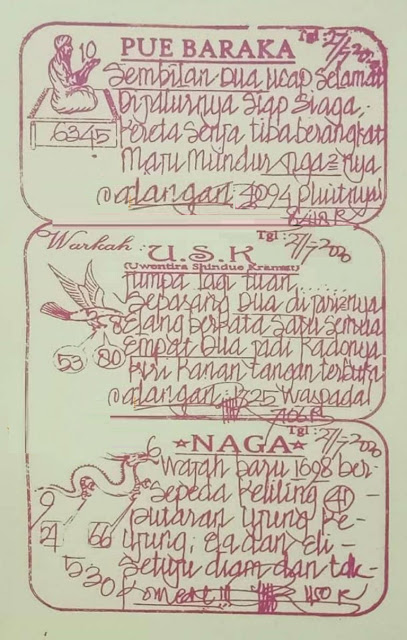 PUE BARAKA
Tgl : 27/7-2020
10
6345
Sembilan Dua Ucap Selamat
Dijalurnya Siap Siaga,
Kereta Senja tiba berangkat
Maju Mundur nga=nya
Palangan 4094 pluitnya
Warkah : U.S.K
Tgl : 27/7-2020
(Uwentira Sindue Kramat)
Jumpa lagi tuan
Sepasang Dua di jari=nya
Elang berkata Satu Semua
Empat Dua jadi Kadonya
Kiri Kanan tangan terbuka
Palangan : 1325 Waspada!
53 80
NAGA
Tgl : 27/7-2020
Wajah baru 1698 ber-
Sepeda Keliling 41 -
putaran Ujung Ke -
Ujung, Ga dan Eli -
Setuju diam dan tak -
Koment !!!
9
21
66
530